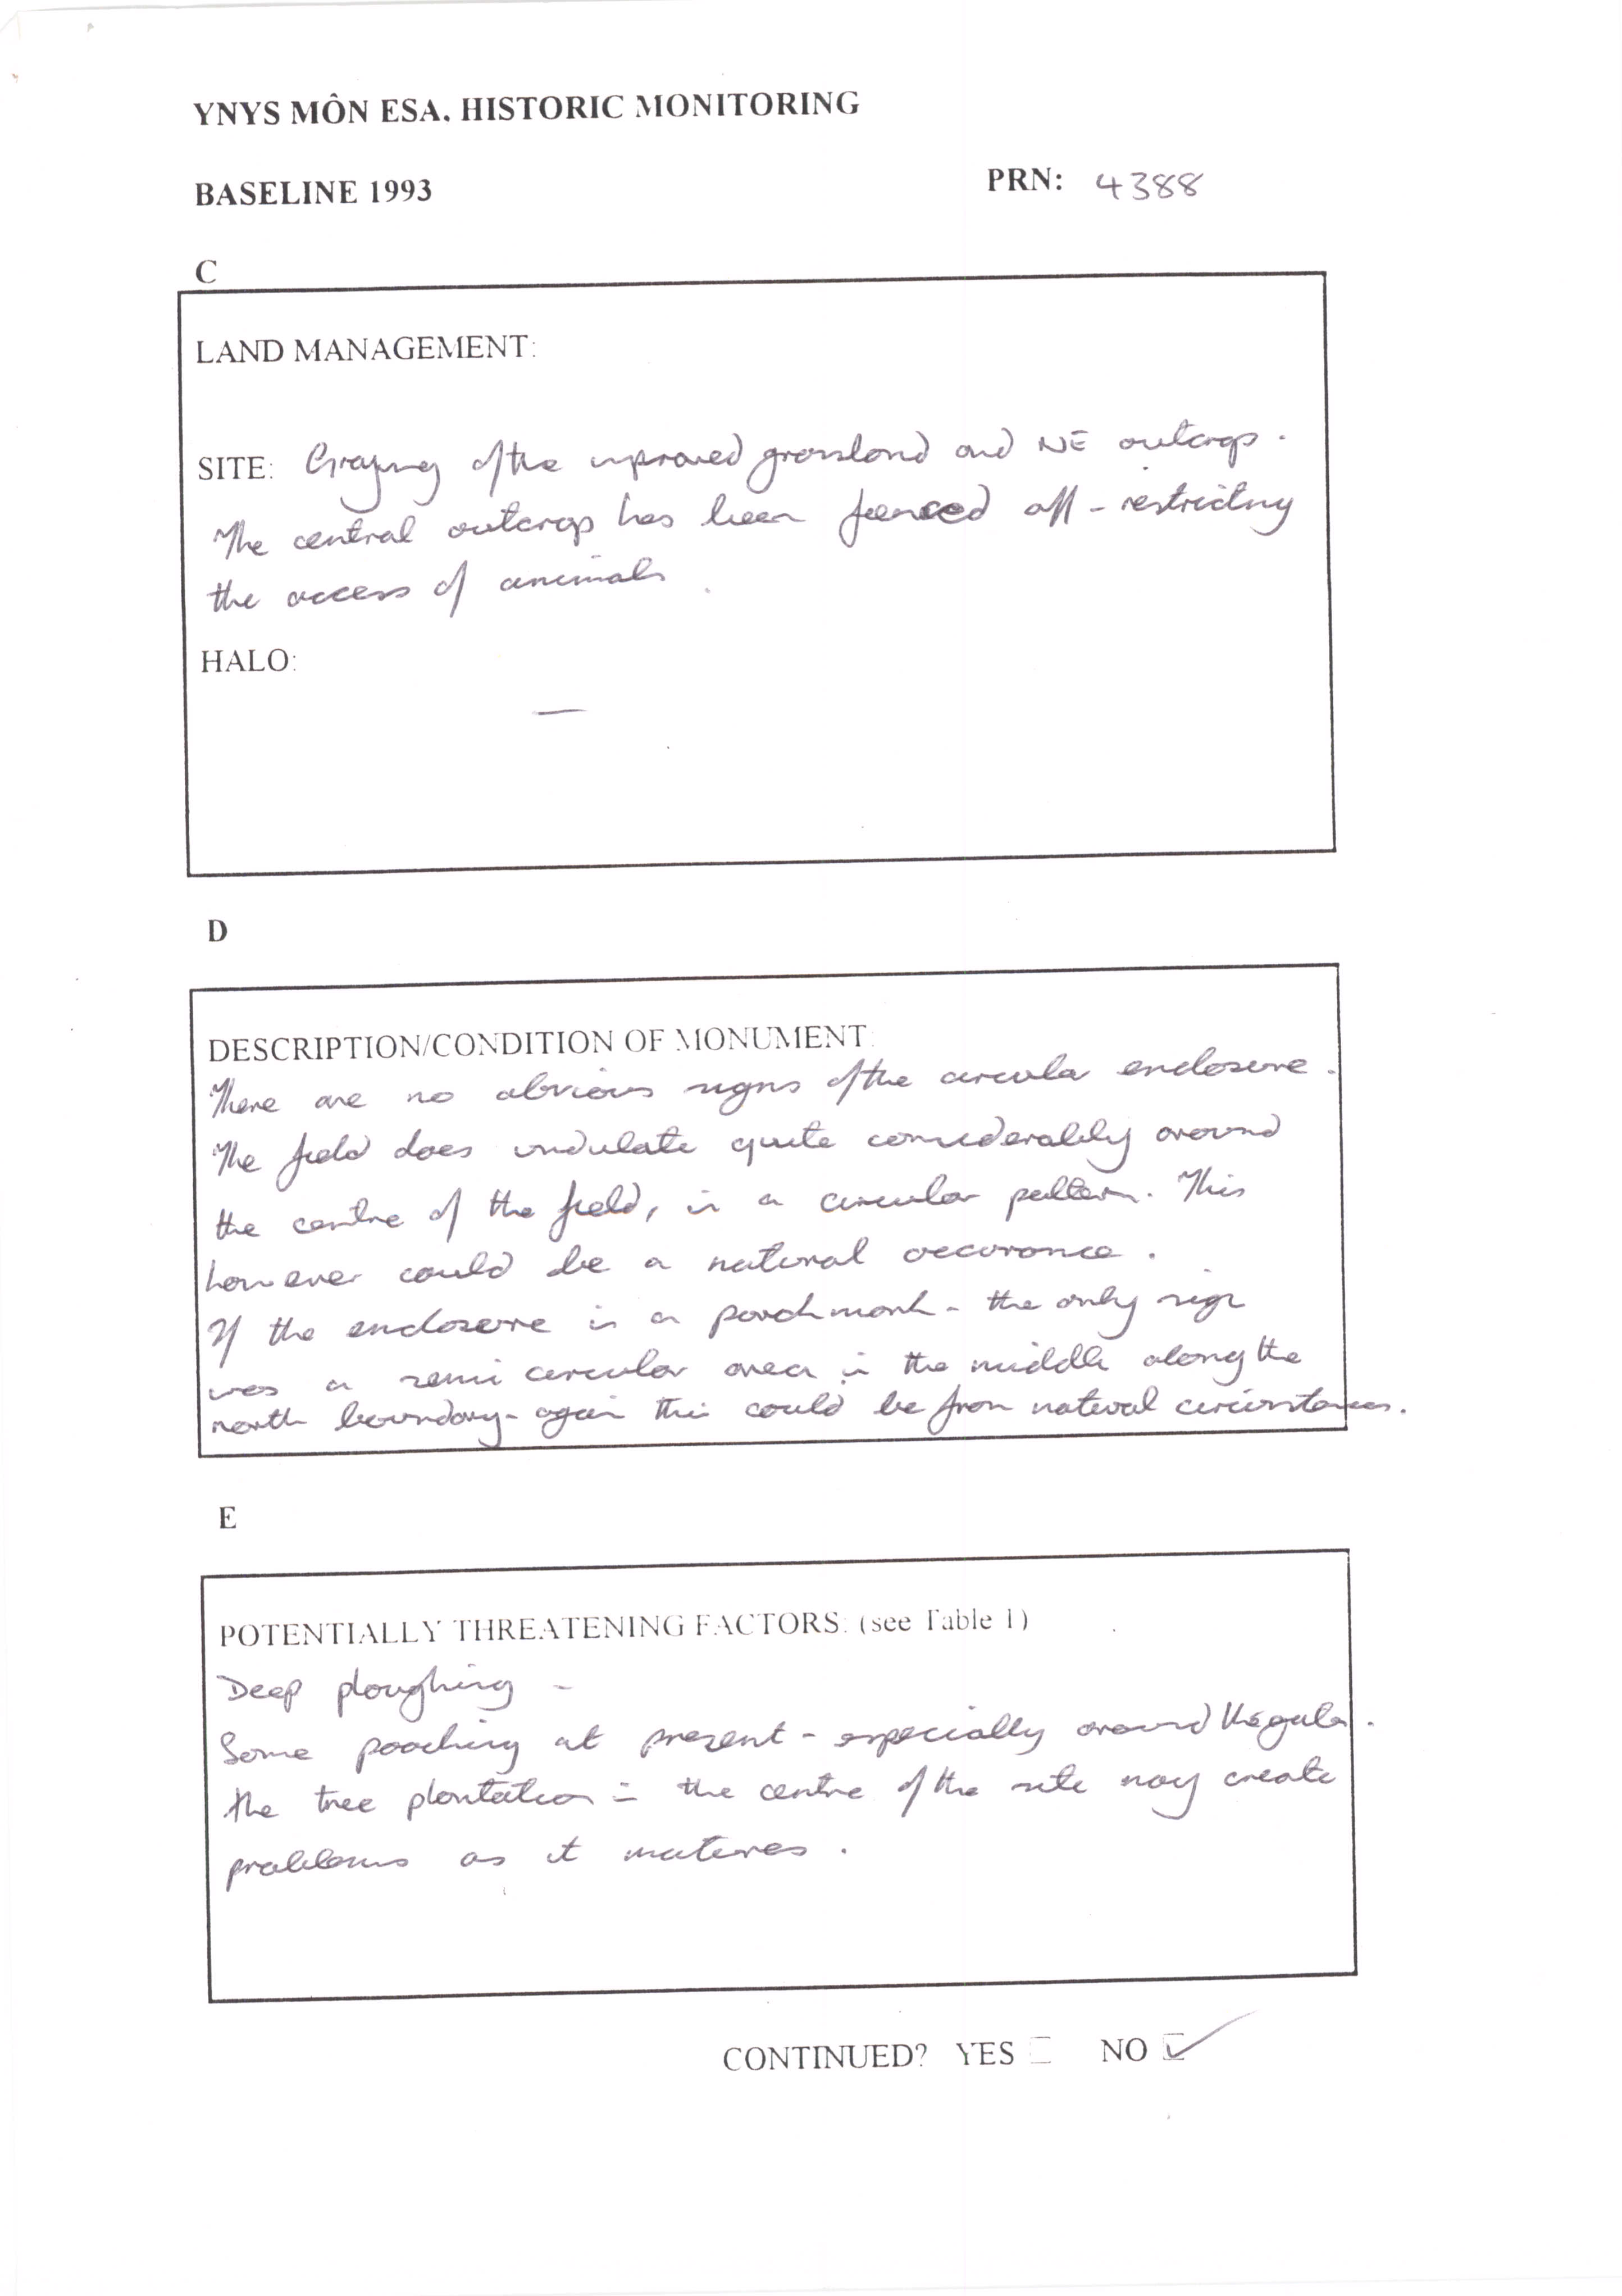 YNYS MÔN ESA. HISTORIC MONITORING
BASELINE 1993
PRN: 4388
C
LAND MANAGEMENT:
SITE: Grazing of the improved grassland and NE outcrop.
The central outcrop has been fenced off - restricting
the access of animals.
HALO:
—
D
DESCRIPTION/CONDITION OF MONUMENT:
There are no obvious signs of the circular enclosure.
The field does undulate quite considerably around
the centre of the field, in a circular pattern. This
however could be a natural occurance.
If the enclosure is a parchmark - the only sign
was a semi circular area in the middle along the
north boundary - again this could be from natural circumstances.
E
POTENTIALLY THREATENING FACTORS: (see Table 1)
Deep ploughing -
Some poaching at present - especially around the gate.
The tree plantation in the centre of the site may create
problems as it matures.
CONTINUED? YES NO ✓